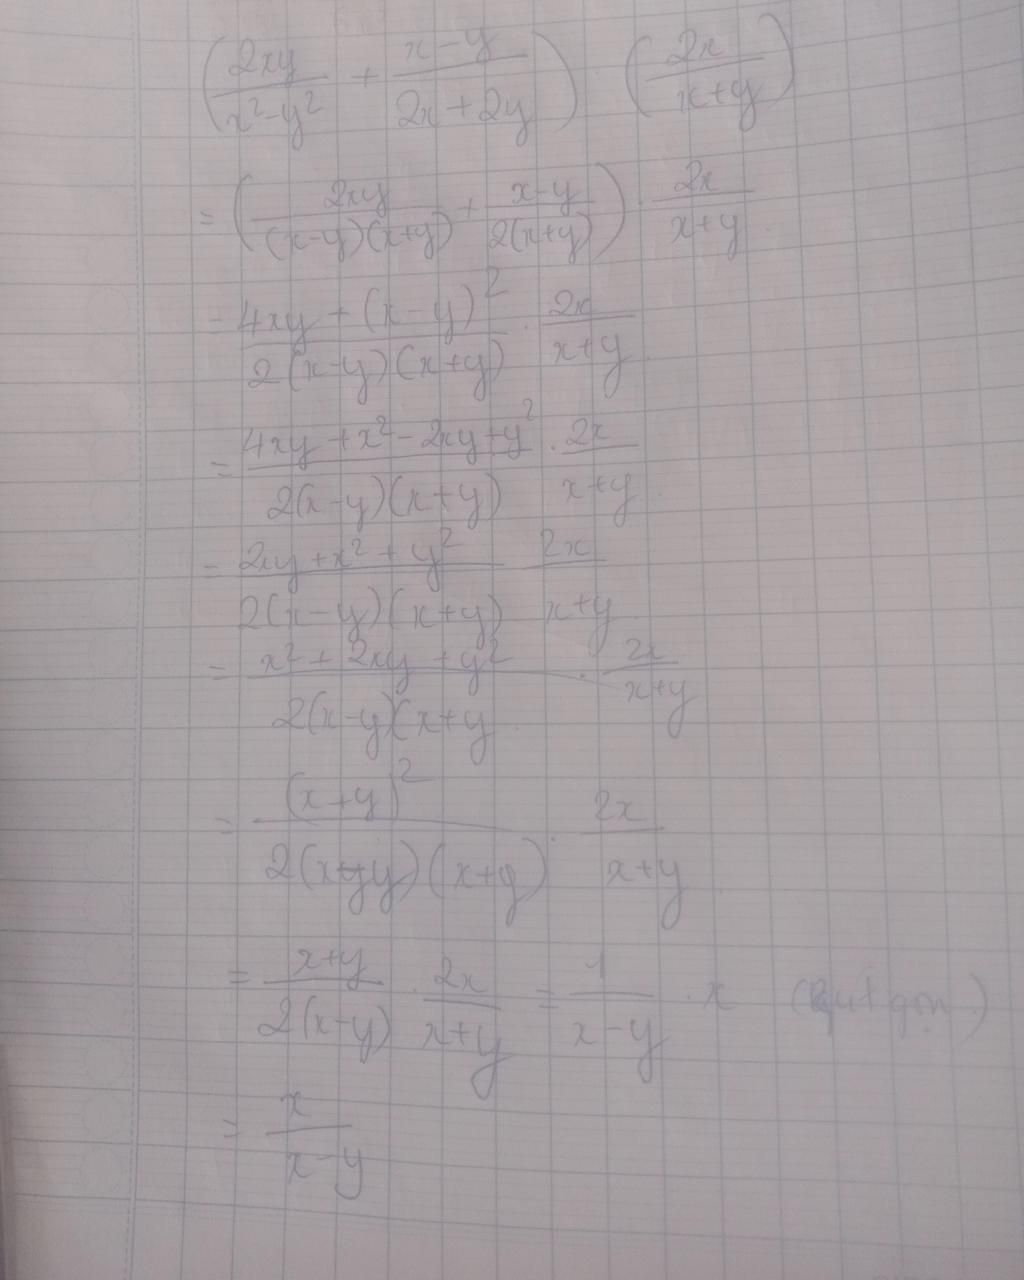 (2xy/(x²-y²) + (x-y)/(2x+2y)) · (2x/(x+y))
= (2xy/((x-y)(x+y)) + (x-y)/(2(x+y))) · 2x/(x+y)
= (4xy+(x-y)²)/(2(x-y)(x+y)) · 2x/(x+y)
= (4xy+x²-2xy+y²)/(2(x-y)(x+y)) · 2x/(x+y)
= (2xy+x²+y²)/(2(x-y)(x+y)) 2x/(x+y)
= (x²+2xy+y²)/(2(x-y)(x+y) · 2x/(x+y)
= (x+y)²/(2(x-y)(x+y)) · 2x/(x+y)
= (x+y)/(2(x-y)) · 2x/(x+y) = 1/(x-y) · x (Rút gọn)
= x/(x-y)